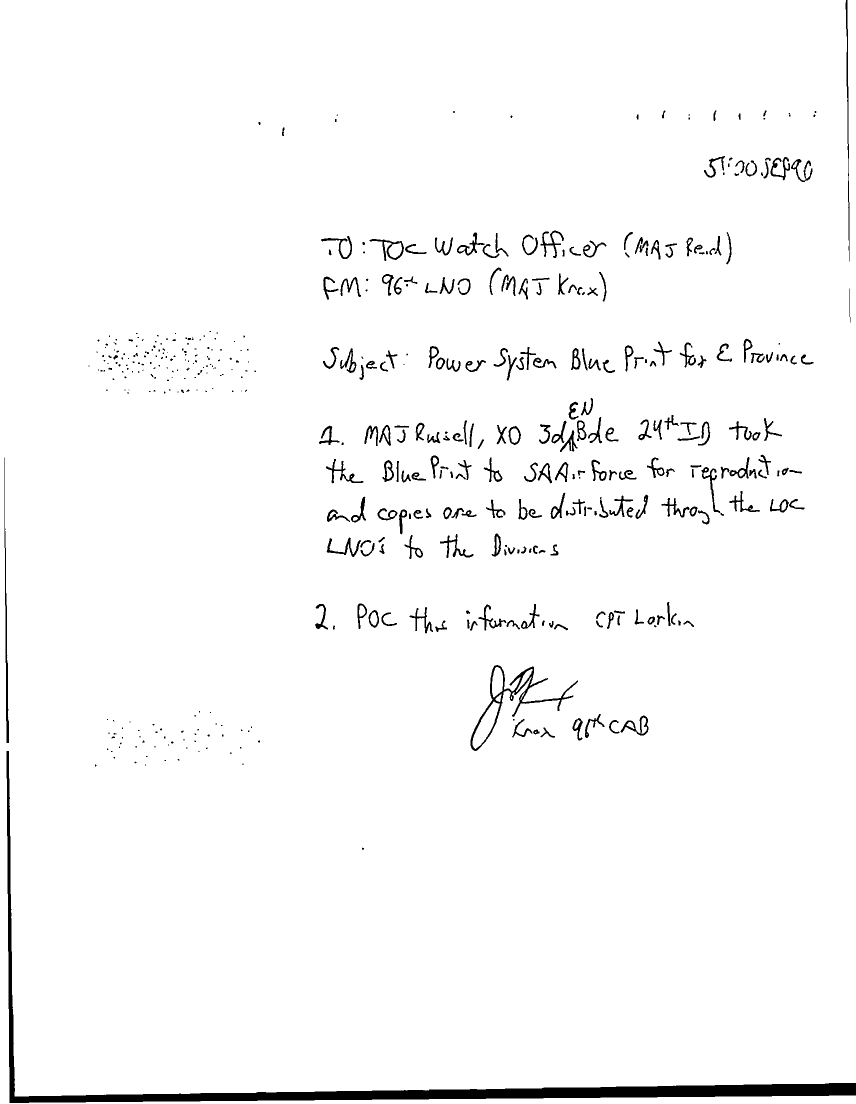 SEP90
TO: TOC Watch Officer (MAJ Reid)
FM: 96th LNO (MAJ Knox)
Subject: Power System Blue Print for E Province
1. MAJ Russell, XO 3d EN Bde 24th ID took
the Blue Print to SA Air Force for reproduction
and copies are to be distributed through the LOC
LNO's to the Divisions
2. POC this information CPT Larkin
Knox 96th CAB